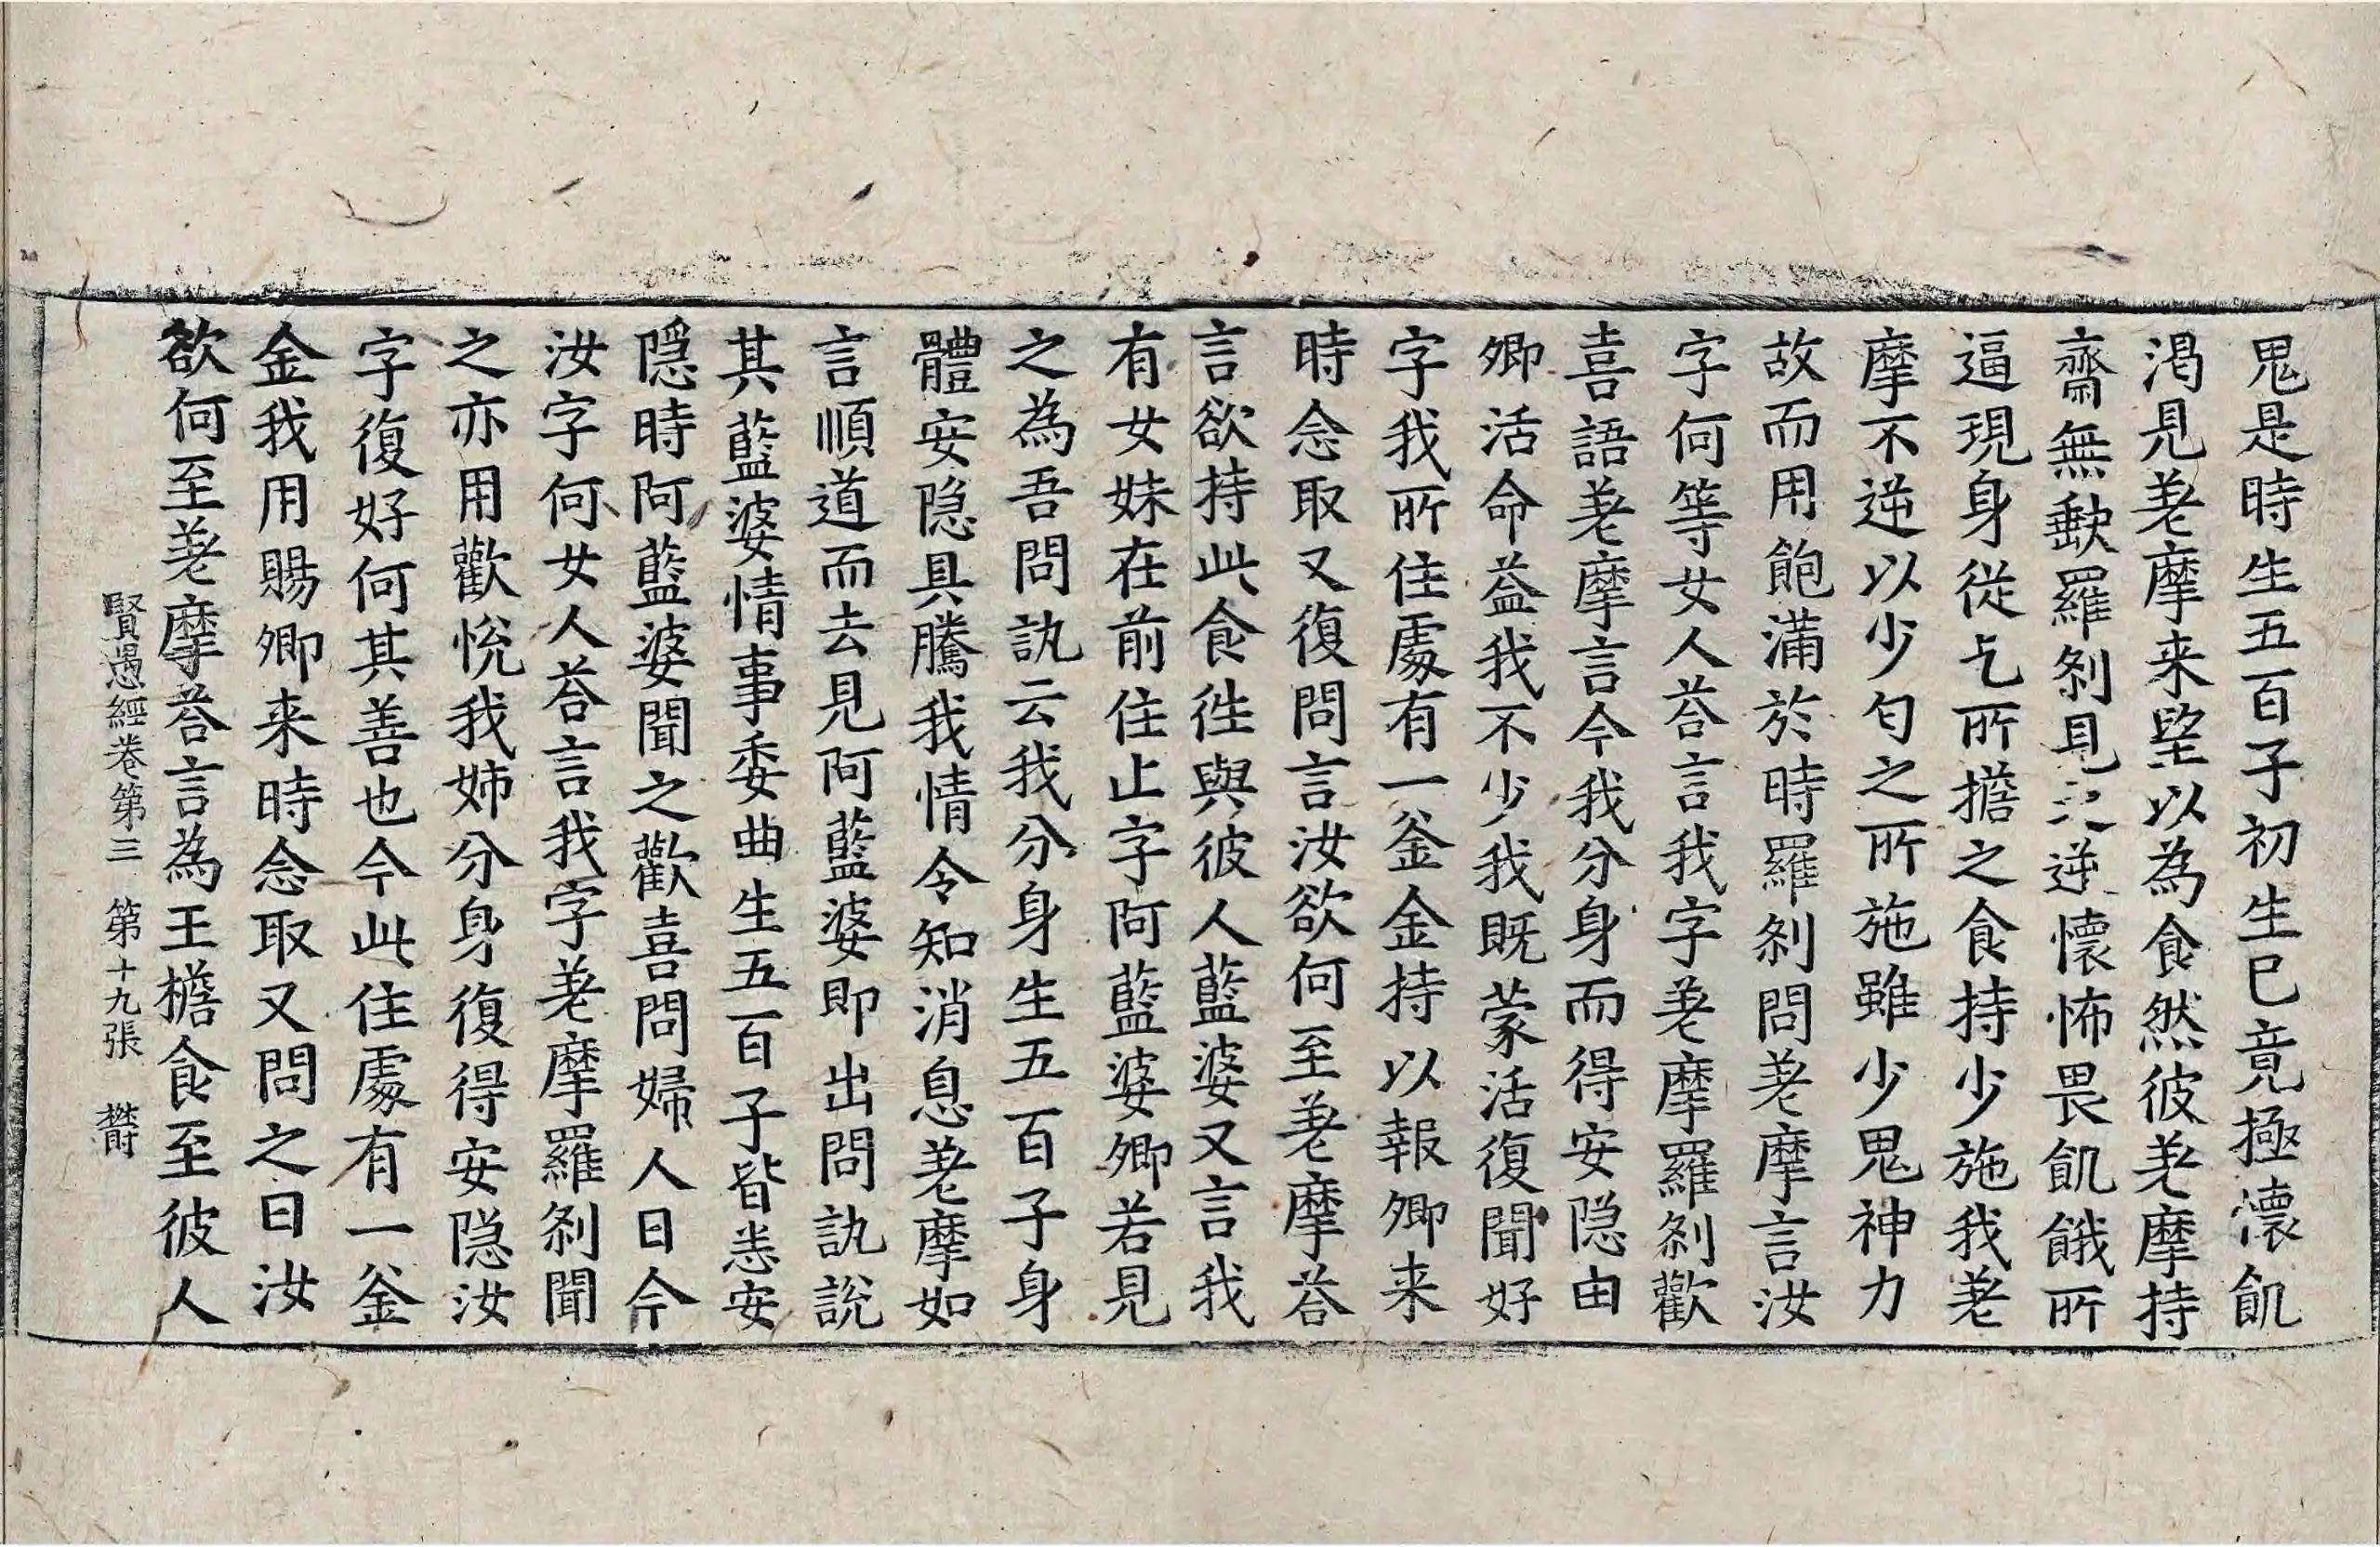 鬼是時生五百子初生巳竟極懷飢
渴見差摩来望以為食然彼差摩持
齋無虧羅刹見之逆懷怖畏飢餓所
逼現身從乞所擔之食持少施我差
摩不逆以少匄之所施雖少鬼神力
故而用飽滿於時羅刹問差摩言汝
字何等女人荅言我字差摩羅刹歡
喜語差摩言今我分身而得安隐由
卿活命益我不少我既蒙活復聞好
字我所住處有一釜金持以報卿来
時念取又復問言汝欲何至差摩荅
言欲持此食徃與彼人藍婆又言我
有女妹在前住止字阿藍婆卿若見
之為吾問訊云我分身生五百子身
體安隐具騰我情令知消息差摩如
言順道而去見阿藍婆即出問訊說
其藍婆情事委曲生五百子皆悉安
隱時阿藍婆聞之歡喜問婦人曰今
汝字何女人荅言我字差摩羅刹聞
之亦用歡悅我姊分身復得安隐汝
字復好何其善也今此住處有一釜
金我用賜卿来時念取又問之曰汝
欲何至差摩荅言為王檐食至彼人
賢愚經卷第三 第十九張 欝